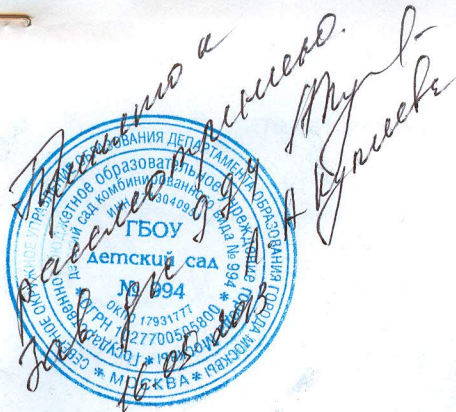 Принято к
рассмотрению.
Зав.
16.05.2013
СЕВЕРНОЕ ОКРУЖНОЕ УПРАВЛЕНИЕ ОБРАЗОВАНИЯ ДЕПАРТАМЕНТА ОБРАЗОВАНИЯ ГОРОДА МОСКВЫ
Государственное бюджетное образовательное учреждение города Москвы
детский сад комбинированного вида № 994
ГБОУ
детский сад
№ 994
ОКПО 17931777
ОГРН 1027700505800
* МОСКВА *